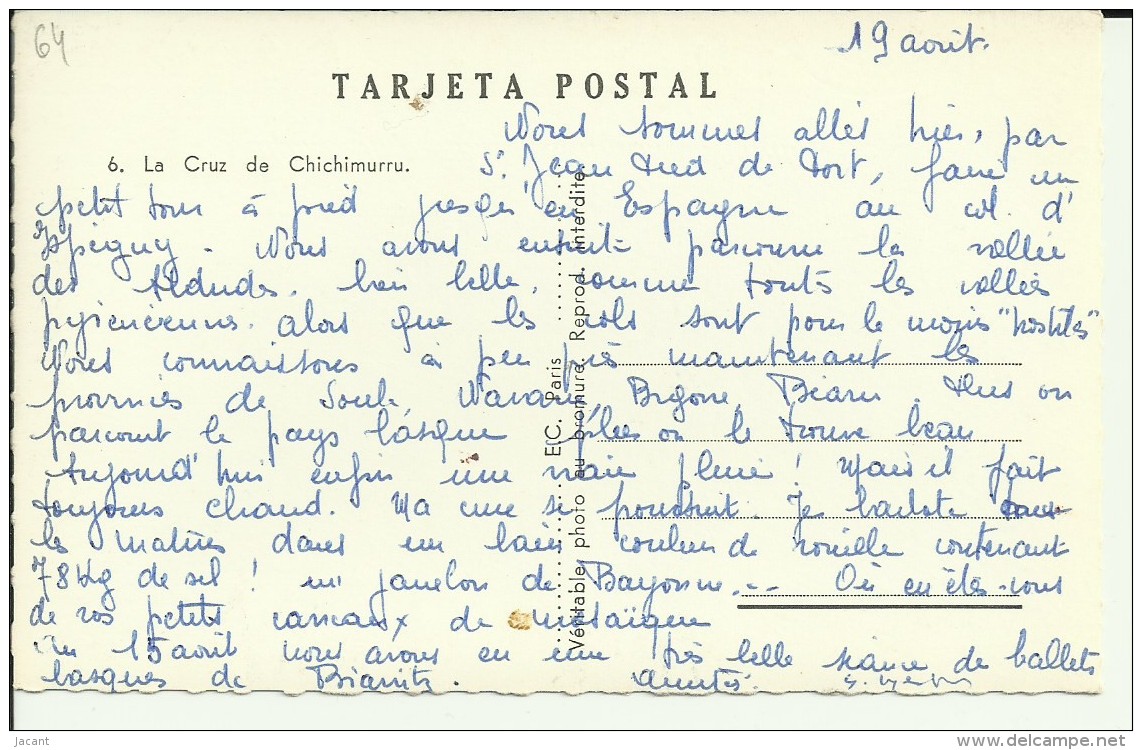 64
19 août.
TARJETA POSTAL
Nous sommes allés hier, par
6. La Cruz de Chichimurru.
St Jean Pied de Port, faire un
petit tour à pied jusqu'en Espagne au col d'
Ispéguy. Nous avons ensuite parcouru la vallée
des Aldudes, bien belle, comme toutes les vallées
pyrénéennes. Alors que les cols sont pour le moins "hostiles"
Nous connaissons à peu près maintenant les
provinces de Soule, Navarre, Bigorre, Béarn. Plus on
parcourt le pays basque plus on le trouve beau
Aujourd'hui enfin une vraie pluie ! Mais il fait
toujours chaud. Ma cure se poursuit. Je barbote tous
les matins dans un bain couleur de rouille contenant
78 Kg de sel ! un jambon de Bayonne... Où en êtes-vous
de vos petits carreaux de mosaïque
Au 15 août nous avons eu une très belle séance de ballets
basques de Biarritz. Amitiés.
E/C. Paris
Véritable photo au bromure. Reprod. interdite.
Jacant
www.delcampe.net